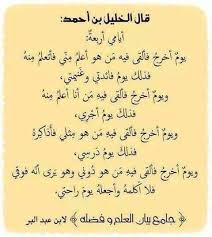 قال الخليل بن أحمد:
أيامي أربعةٌ:
يومٌ أخرجُ فألقى فيه من هو أعلمُ منّي فأتعلمُ منهُ
فذلكَ يومُ فائدتي وغنيمتي،
ويومٌ أخرجُ فألقى فيهِ مَن أنا أعلمُ منهُ
فذلكَ يومُ أجْري،
ويومٌ أخرجُ فألقى فيهِ مَن هو مِثلي فأذاكِرهُ
فذلكَ يومُ دَرسِي،
ويومٌ أخرجُ فألقى فيه من هو دُوني وهو يَرى أنّه فوقي
فلا أكلمهُ وأجعلهُ يومَ راحتي.
﴿ جامع بيان العلم و فضله ﴾ لابن عبد البر